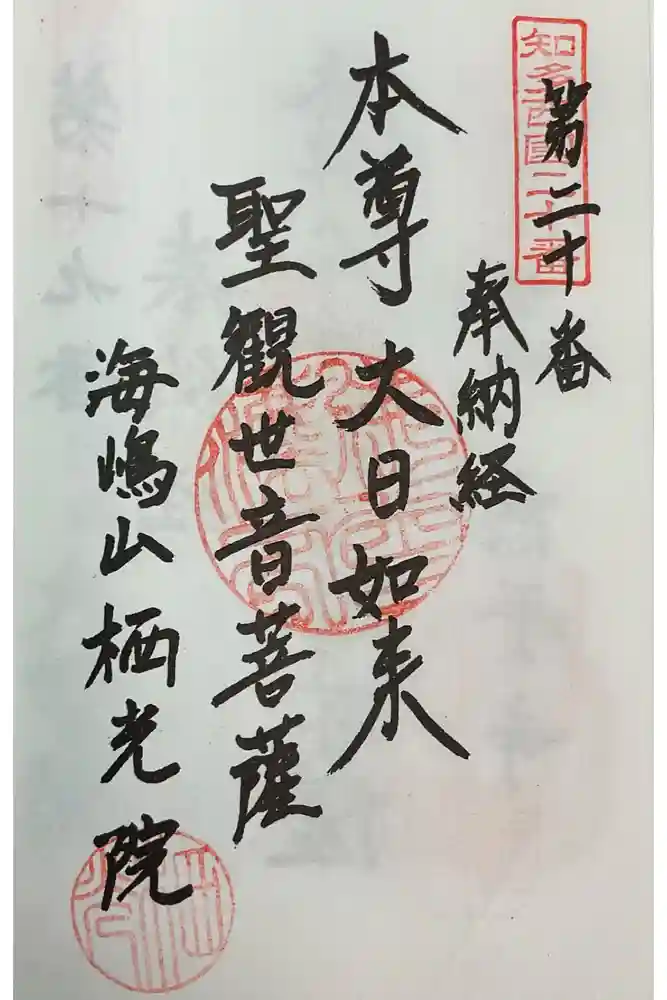 知多西國二十番
第二十番
奉納経
本尊大日如来
聖觀世音菩薩
海嶋山栖光院